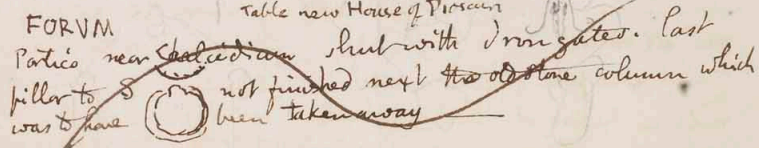 Table new House of
FORVM
Portico near Chalcidicum shut with Iron gates. Last
pillar to S not finished next the old stone column which
was to have been taken away